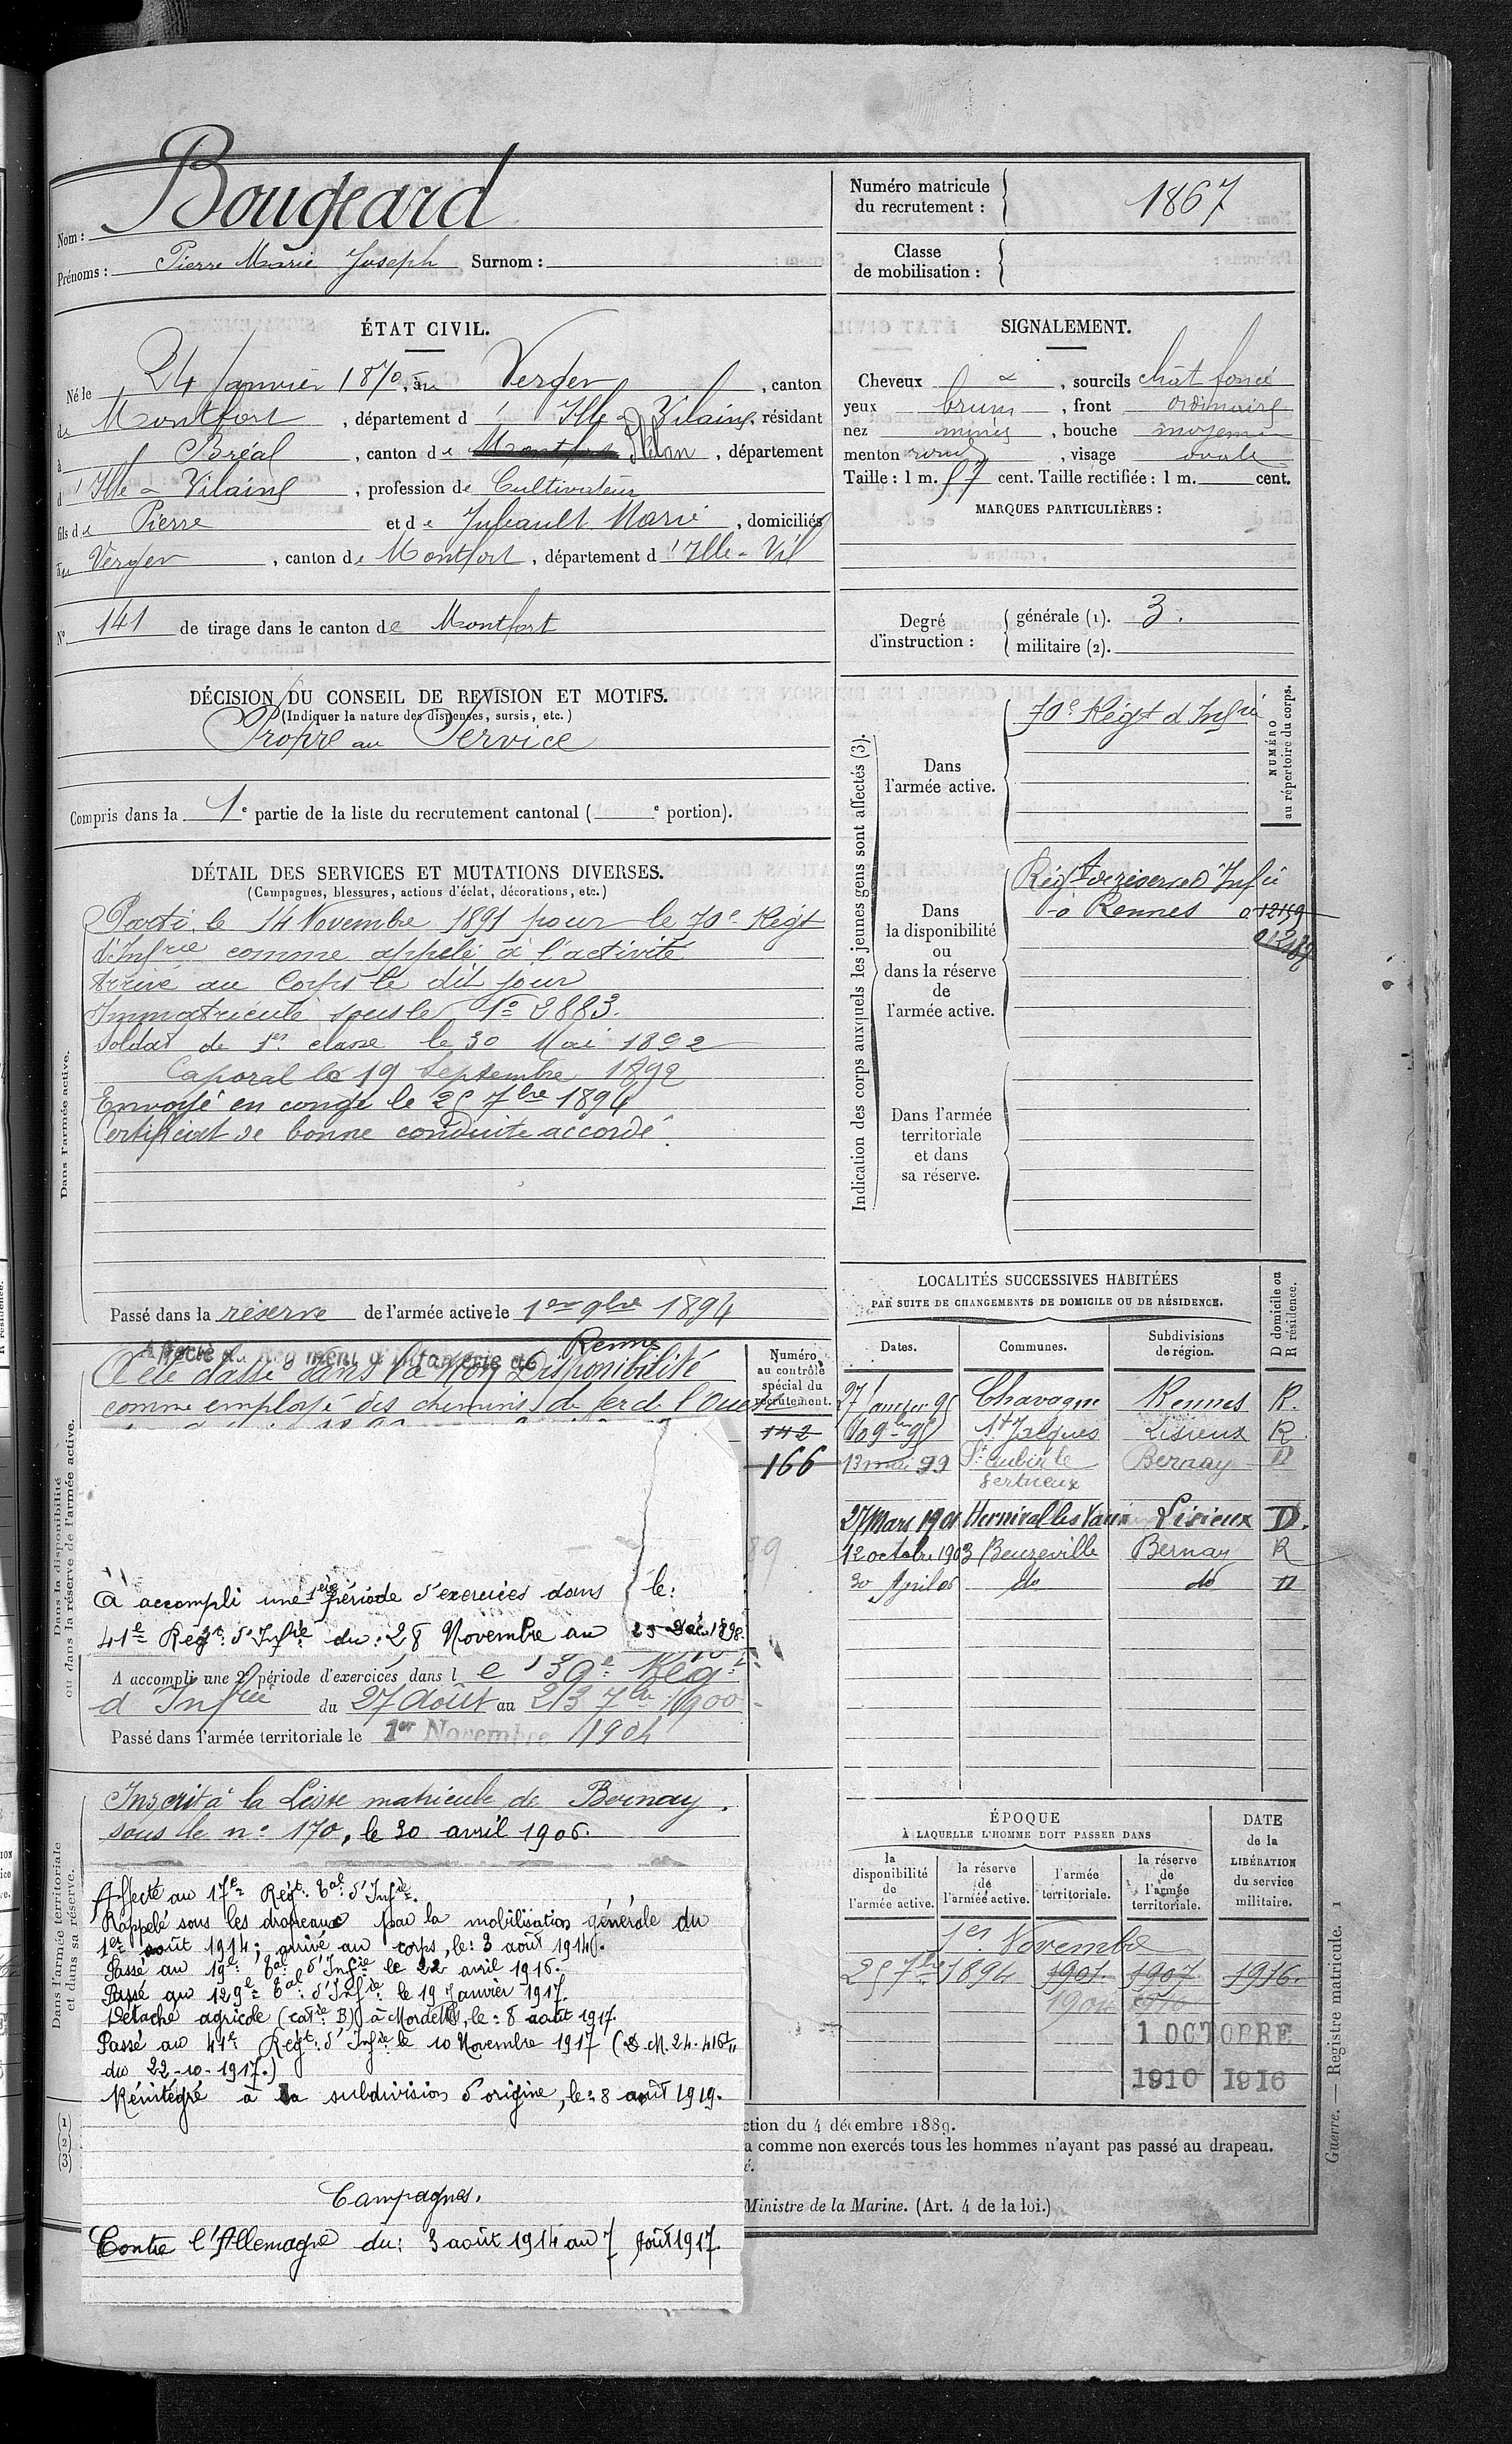 Nom : Bougeard
Prénoms : Pierre Marie Joseph Surnom :
Numéro matricule du recrutement : 1867
Classe de mobilisation :
ÉTAT CIVIL.
Né le 24 Janvier 1870, au Verger, canton
de Montfort, département d'Ille & Vilaine, résidant
à Bréal, canton de Montfort Plélan, département
d'Ille & Vilaine, profession de Cultivateur
fils de Pierre et de Jubeault Marie, domiciliés
au Verger, canton de Montfort, département d'Ille-Vil
N° 141 de tirage dans le canton de Montfort
SIGNALEMENT.
Cheveux &, sourcils chât foncé
yeux bruns, front ordinaire
nez mince, bouche moyenne
menton rond, visage ovale
Taille : 1 m. 57 cent. Taille rectifiée : 1 m. cent.
MARQUES PARTICULIÈRES :
Degré d'instruction : générale (1). 3.
militaire (2).
DÉCISION DU CONSEIL DE REVISION ET MOTIFS.
(Indiquer la nature des dispenses, sursis, etc.)
Propre au Service
Compris dans la 1e partie de la liste du recrutement cantonal ( e portion).
DÉTAIL DES SERVICES ET MUTATIONS DIVERSES.
(Campagnes, blessures, actions d'éclat, décorations, etc.)
Dans l'armée active.
Parti le 14 Novembre 1891 pour le 70e Régt
d'Infrie comme appelé à l'activité
Arrivé au Corps le dit jour
Immatriculé sous le No 3883.
Soldat de 1re classe le 30 Mai 1892
Caporal le 19 Septembre 1892
Envoyé en congé le 25 7bre 1894
Certificat de bonne conduite accordé.
Passé dans la réserve de l'armée active le 1er 9bre 1894
Indication des corps auxquels les jeunes gens sont affectés (3).
NUMÉRO au répertoire du corps.
Dans l'armée active.
70e Régt d'Infrie
Dans la disponibilité ou dans la réserve de l'armée active.
Régt de réserve d'Infie
à Rennes
Dans l'armée territoriale et dans sa réserve.
Dans la disponibilité ou dans la réserve de l'armée active.
Affecté au Régiment d'Infanterie de Rennes
A été classé dans la non Disponibilité
comme employé des chemins de fer de l'Ouest
Numéro au contrôle spécial du recrutement.
142
166
A accompli une 1ère période d'exercices dans le:
41e Régt d'Infie du: 28 Novembre au 25 Déc. 1898.
A accompli une 2e période d'exercices dans le 39e Régt
d'Infrie du 27 Août au 23 7bre 1900
Passé dans l'armée territoriale le 1er Novembre 1904
LOCALITÉS SUCCESSIVES HABITÉES
PAR SUITE DE CHANGEMENTS DE DOMICILE OU DE RÉSIDENCE.
Dates. Communes. Subdivisions de région. D domicile ou R résidence.
27 Janvier 95 Chavagne Rennes R.
10 9bre 95 St Jacques Lisieux R
13 mai 99 St Aubin le Vertueux Bernay D
27 Mars 1901 Hermival les Vaux Lisieux D.
12 octobre 1903 Beuzeville Bernay R
30 April 06 do do D
Dans l'armée territoriale et dans sa réserve.
Inscrit à la Liste matricule de Bernay.
sous le n° 170, le 30 avril 1906.
Affecté au 17e Régt Eal d'Infie.
Rappelé sous les drapeaux par la mobilisation générale du
1er août 1914; arrivé au corps, le: 3 août 1914.
Passé au 19e Eal d'Infie le 22 avril 1916.
Passé au 129e Eal d'Infie le 19 Janvier 1917.
Détaché agricole (catie B) à Mordelles, le: 8 août 1917.
Passé au 41e Régt d'Infie le 10 Novembre 1917 (D.M. 24.416
du 22-10-1917.)
Réintégré à sa subdivision d'origine, le: 8 août 1919.
Campagnes.
Contre l'Allemagne du: 3 août 1914 au 7 Août 1917.
ÉPOQUE
À LAQUELLE L'HOMME DOIT PASSER DANS
la disponibilité de l'armée active. la réserve de l'armée active. l'armée territoriale. la réserve de l'armée territoriale. DATE de la LIBÉRATION du service militaire.
1er Novembre
25 7bre 1894 1901 1907 1916
1904
1 OCTOBRE
1910 1916
(1)
(2)
(3)
ction du 4 décembre 1889.
a comme non exercés tous les hommes n'ayant pas passé au drapeau.
é.
Ministre de la Marine. (Art. 4 de la loi.)
Guerre. — Registre matricule. 1